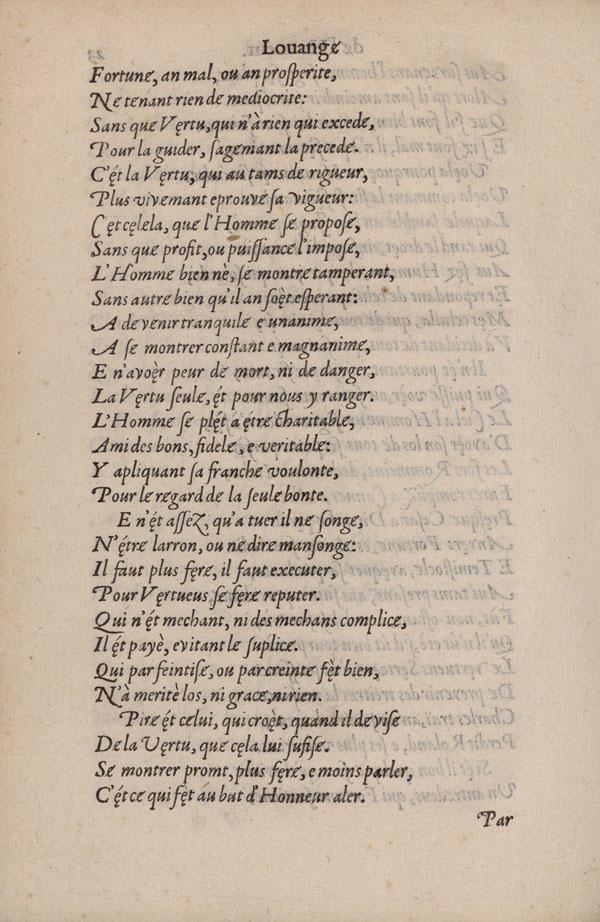 Louangę
Fortune, an mal, ou an prosperite,
Ne tenant rien de mediocrite:
Sans que Vęrtu, qui n'à rien qui excede,
Pour la guider, sagemant la precede.
C'ę́t la Vęrtu, qui au tams de rigueur,
Plus vivemant eprouvę sa vigueur:
Cęt cęlela, que l'Homme sę propose,
Sans que profit, ou puissance l'impose,
L'Homme bien nè, sę montre tamperant,
Sans autre bien qu'il an soę̀t esperant:
A dęvenir tranquile e unanime,
A sę montrer constant e magnanime,
E n'avoę̀r peur de mort, ni de danger,
La Vęrtu seule, ę́t pour nous y ranger.
L'Homme sę plę́t a ętre charitable,
Ami des bons, fidele, e veritable:
Y apliquant sa franche voulonte,
Pour le regard de la seule bonte.
E n'ę́t assez, qu'a tuer il ne songe,
N'ę́tre larron, ou ne dire mansonge:
Il faut plus fęre, il faut executer,
Pour Vęrtueus sę fęre reputer.
Qui n'ę́t mechant, ni des mechans complice,
Il ę́t payè, evitant le suplice.
Qui par feintise, ou par creinte fę̀t bien,
N'à meritè los, ni grace, ni rien.
Pire ę́t celui, qui croę̀t, quand il devise
De la Vęrtu, que cęla lui sufise.
Se montrer promt, plus fęre, e moins parler,
C'ę́t ce qui fę̀t au but d'Honneur aler.
Par